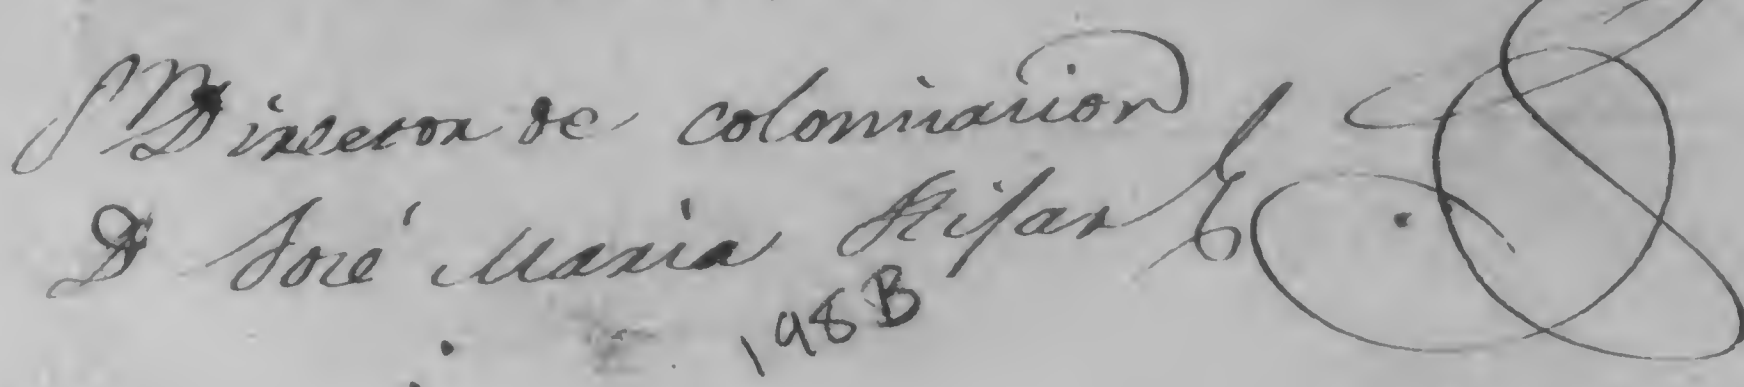 Sr Director de colonizacion
D José Maria Hijar
198B